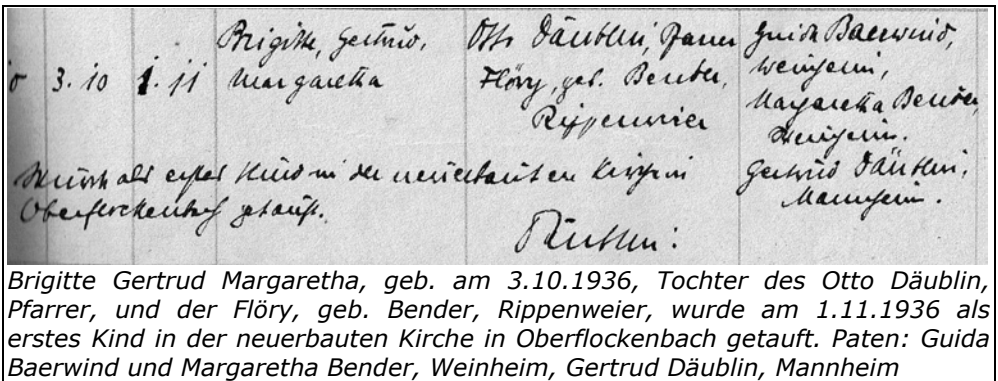 Brigitte, Gertrud,
Margaretha
3. 10
1. 11
Otto Däublin, Pfarrer
Flöry, geb. Bender,
Rippenweier
Guida Baerwind,
Weinheim,
Margaretha Bender,
Weinheim.
Gertrud Däublin,
Mannheim.
Wurde als erstes Kind in der neuerbauten Kirche in
Oberflockenbach getauft.
Däublin.
Brigitte Gertrud Margaretha, geb. am 3.10.1936, Tochter des Otto Däublin,
Pfarrer, und der Flöry, geb. Bender, Rippenweier, wurde am 1.11.1936 als
erstes Kind in der neuerbauten Kirche in Oberflockenbach getauft. Paten: Guida
Baerwind und Margaretha Bender, Weinheim, Gertrud Däublin, Mannheim